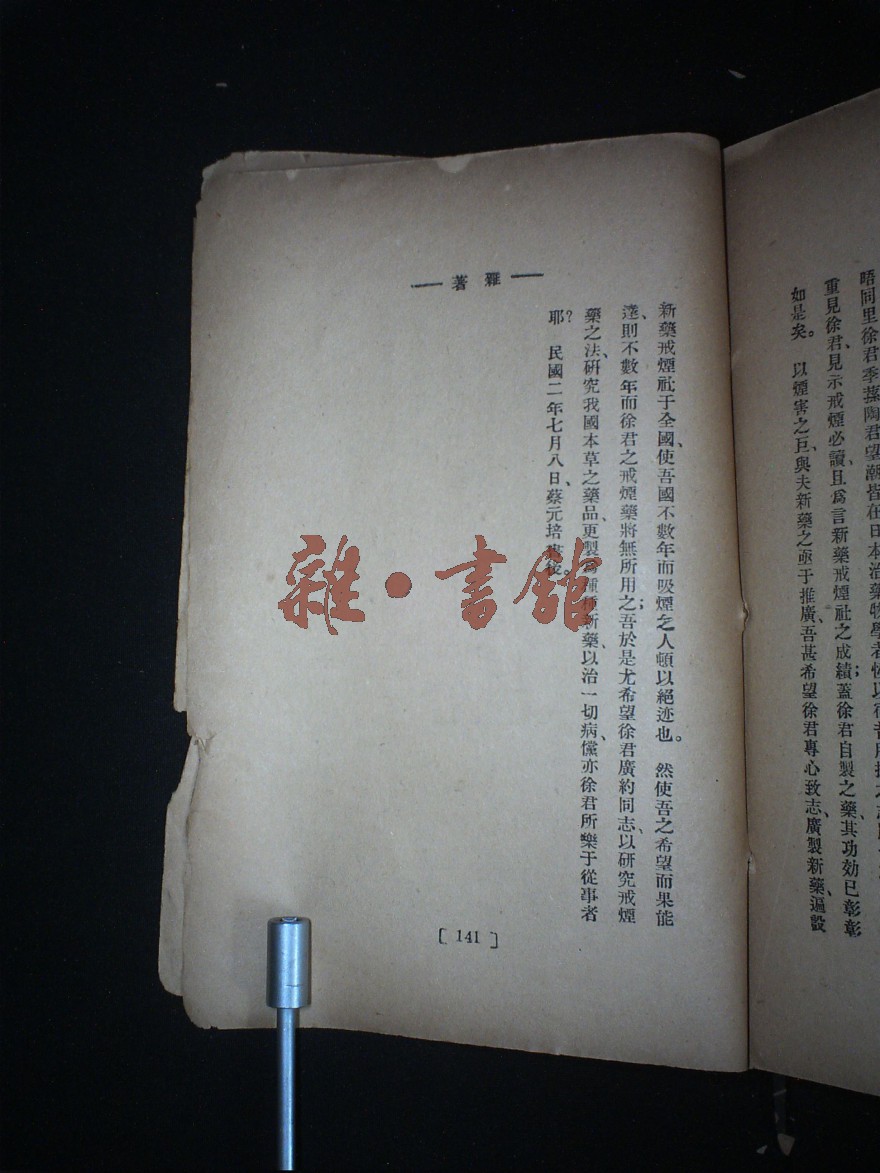 晤同里徐君季蓀、陶君望潮、皆在日本治藥物學者
重見徐君、見示戒煙必讀、且爲言新藥戒煙社之成績；蓋徐君自製之藥、其功効已彰彰
如是矣。　以煙害之巨、與夫新藥之亟于推廣、吾甚希望徐君專心致志、廣製新藥、遍設
— 雜著 —
新藥戒煙社于全國、使吾國不數年而吸煙之人頓以絕迹也。　然使吾之希望而果能
達、則不數年而徐君之戒煙藥將無所用之；吾於是尤希望徐君廣約同志、以研究戒煙
藥之法、研究我國本草之藥品、更製爲種種新藥、以治一切病、儻亦徐君所樂于從事者
耶？　民國二年七月八日、蔡元培
[ 141 ]
雜·書館